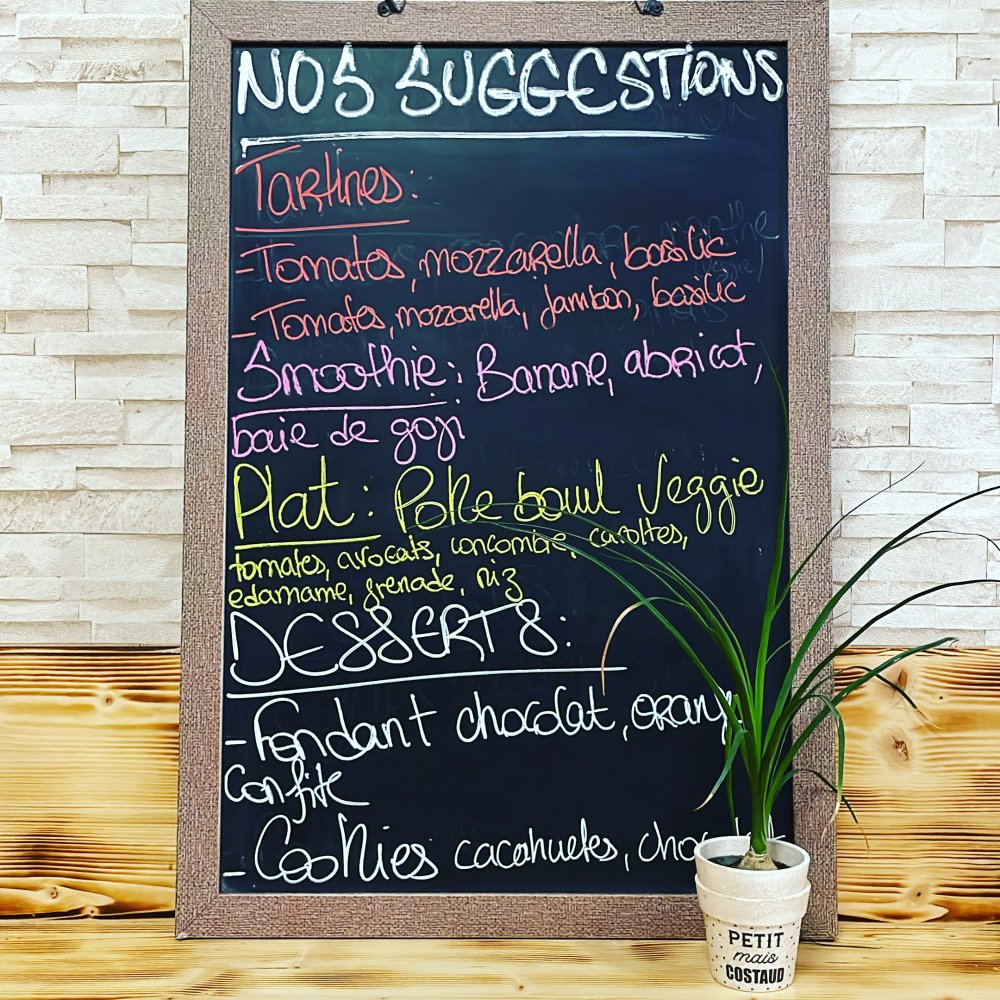 NOS SUGGESTIONS
Tartines:
- Tomates, mozzarella, basilic
- Tomates, mozzarella, jambon, basilic
Smoothie: Banane, abricot,
baie de goji
Plat: Poke bowl Veggie
tomates, avocats, concombre, carottes,
edamame, grenade, riz
DESSERTS:
- Fondant chocolat, orange
Confite
- Cookies cacahuetes, chocolat
PETIT
mais
COSTAUD